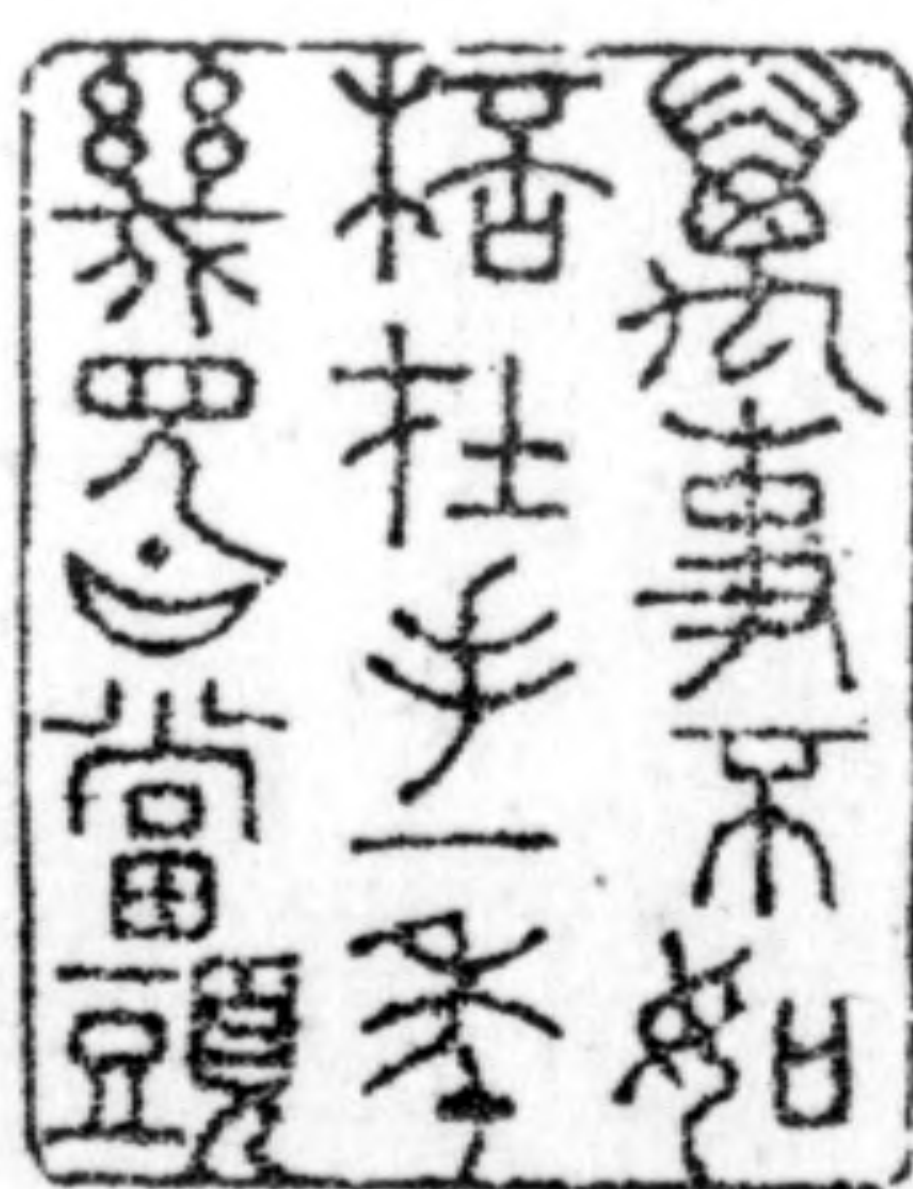 萬事不如
桮在手一年
幾見月當頭